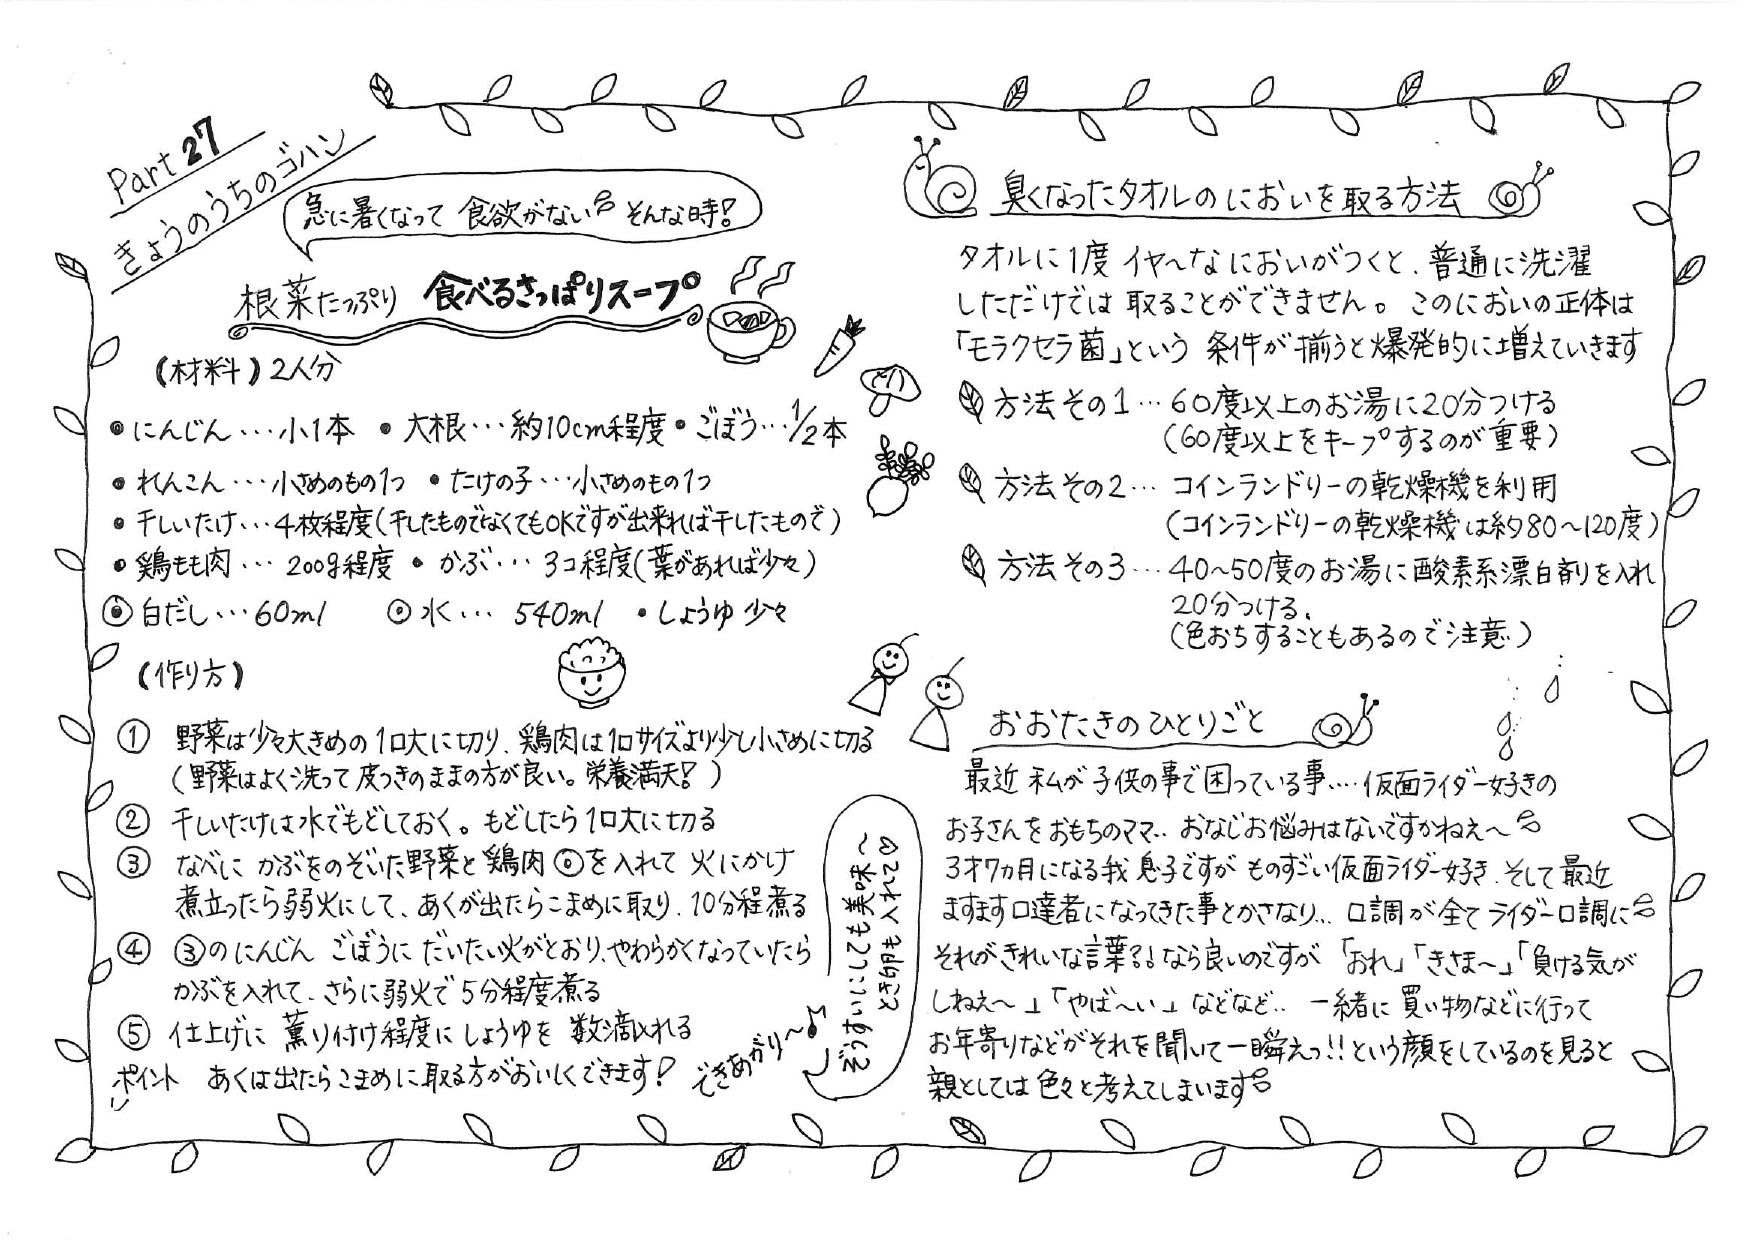 Part 27
きょうのうちのゴハン
急に暑くなって 食欲がない そんな時!
根菜たっぷり 食べるさっぱりスープ
(材料)2人分
●にんじん…小1本 ●大根…約10cm程度 ●ごぼう…1/2本
●れんこん…小さめのもの1つ ●たけの子…小さめのもの1つ
●干しいたけ…4枚程度(干したものでなくてもOKですが出来れば干したもので)
●鶏もも肉… 200g程度 ●かぶ… 3コ程度(葉があれば少々)
◎白だし…60ml ◎水… 540ml ・しょうゆ 少々
(作り方)
① 野菜は少々大きめの1口大に切り、鶏肉は1口サイズより少し小さめに切る
(野菜はよく洗って皮つきのままの方が良い。栄養満天!)
② 干しいたけは水でもどしておく。もどしたら1口大に切る
③ なべに かぶをのぞいた野菜と鶏肉◎を入れて 火にかけ
煮立ったら弱火にして、あくが出たらこまめに取り、10分程煮る
④ ③のにんじん ごぼうに だいたい火がとおり、やわらかくなっていたら
かぶを入れて、さらに弱火で5分程度煮る
⑤ 仕上げに 薫り付け程度にしょうゆを 数滴入れる
ポイント あくは出たらこまめに取る方がおいしくできます!
できあがり〜♪
ぞうすいにしても美味〜
とき卵も入れて♡
臭くなったタオルのにおいを取る方法
タオルに1度 イヤ〜なにおいがつくと、普通に洗濯
しただけでは 取ることができません。このにおいの正体は
「モラクセラ菌」という 条件が揃うと爆発的に増えていきます
方法その1…60度以上のお湯に20分つける
(60度以上をキープするのが重要)
方法その2… コインランドリーの乾燥機を利用
(コインランドリーの乾燥機は約80〜120度)
方法その3…40〜50度のお湯に酸素系漂白剤を入れ
20分つける.
(色おちすることもあるので注意)
おおたきのひとりごと
最近 私が子供の事で困っている事….仮面ライダー好きの
お子さんをおもちのママ.. おなじお悩みはないですかねぇ〜
3才7カ月になる我息子ですが ものすごい仮面ライダー好き、そして最近
ますます口達者になってきた事とかさなり… 口調が全てライダー口調に
それがきれいな言葉??なら良いのですが 「おれ」「きさま〜」「負ける気が
しねえ〜」「やば〜い」などなど.. 一緒に買い物などに行って
お年寄りなどがそれを聞いて一瞬えっ!!という顔をしているのを見ると
親としては色々と考えてしまいます